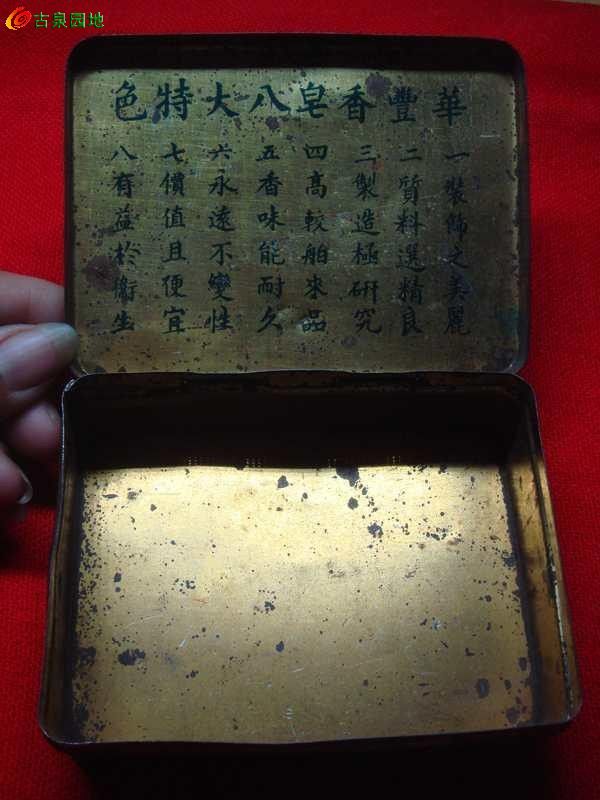 古泉园地
華豐香皂八大特色
一裝飾之美麗
二質料選精良
三製造極研究
四高較舶來品
五香味能耐久
六永遠不變性
七價值且便宜
八有益於衛生